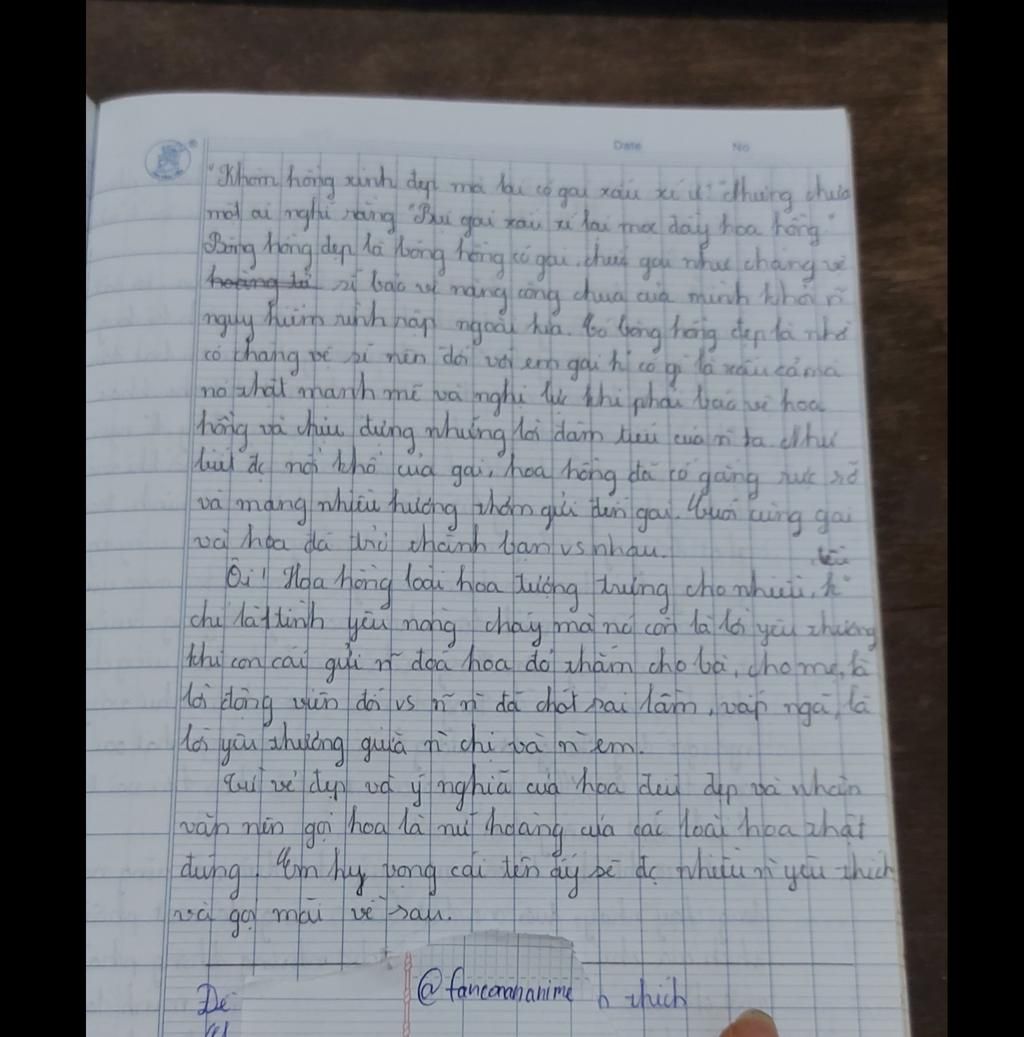 Date No
"Khóm hồng xinh đẹp mà lại có gai xấu xí ư" Nhưng chưa
một ai nghĩ rằng "Bụi gai xấu xí lại mọc đầy hoa hồng"
Bông hồng đẹp là bông hồng có gai, chiếc gai như chàng vệ
hoàng tử sĩ bảo vệ nàng công chúa của mình khỏi
nguy hiểm rình rập ngoài kia. Có bông hồng đẹp là nhờ
có chàng vệ sĩ nên đối với em gai k có gì là xấu cả mà
nó thật mạnh mẽ và nghị lực khi phải bảo vệ hoa
hồng và chịu đựng những lời dàm tiếu của ta. Như
biết đc nỗi khổ của gai, hoa hồng đã cố gắng rực rỡ
và mang nhiều hương thơm gửi đến gai. Cuối cùng gai
và hoa đã trở thành bạn vs nhau.
Ôi! Hoa hồng loài hoa tượng trưng cho nhiều, k
chỉ là tình yêu nồng cháy mà nó còn là lời yêu thương
khi con cái gửi đoá hoa đỏ thắm cho bà, cho mẹ, là
lời động viên đối vs đã chót sai lầm, vấp ngã, là
lời yêu thương giữa chị và em.
vẻ đẹp và ý nghĩa của hoa đều đẹp và nhân
văn nên gọi hoa là nữ hoàng của các loài hoa thật
đúng. Em hy vọng cái tên ấy sẽ đc nhiều yêu thích
và gọi mãi về sau.
Đề @fanconanhanime thích